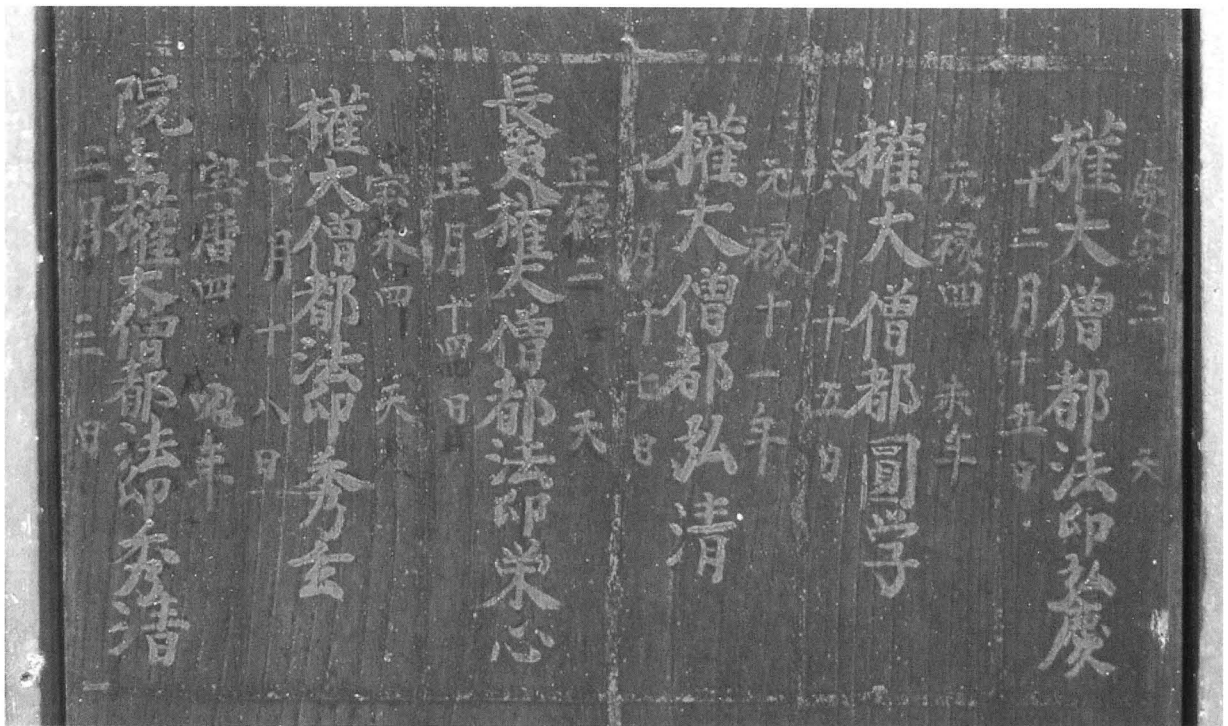 二 天
権大僧都法印弘慶
十二月十五日
元禄四 未年
権大僧都圓学
月十五日
元禄十一年
権大僧都弘清
七月十七日
正徳二 天
長 権大僧都法印栄心
正月十四日
宝永四 天
権大僧都法印秀玄
七月十八日
宝暦四 年
院主権大僧都法印秀清
二月三日